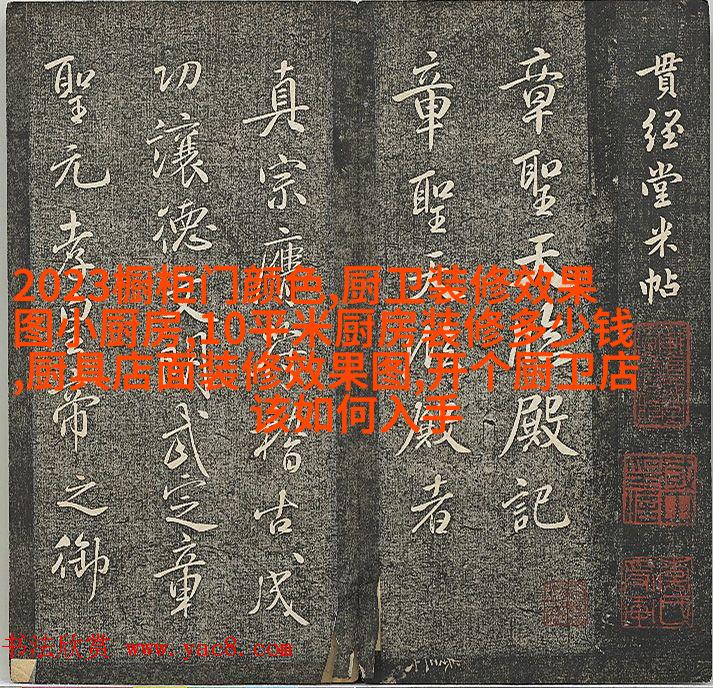 貫經堂米帖
章聖天臨殿記
章聖天臨殿者
真宗膺符稽古成
功讓德文明武定章
聖元孝皇帝之御
2023橱柜门颜色,厨卫装修效果
图小厨房,10平米厨房装修多少钱
,厨具店面装修效果图,开个厨卫店
该如何入手
书法欣赏 www.yac8.com